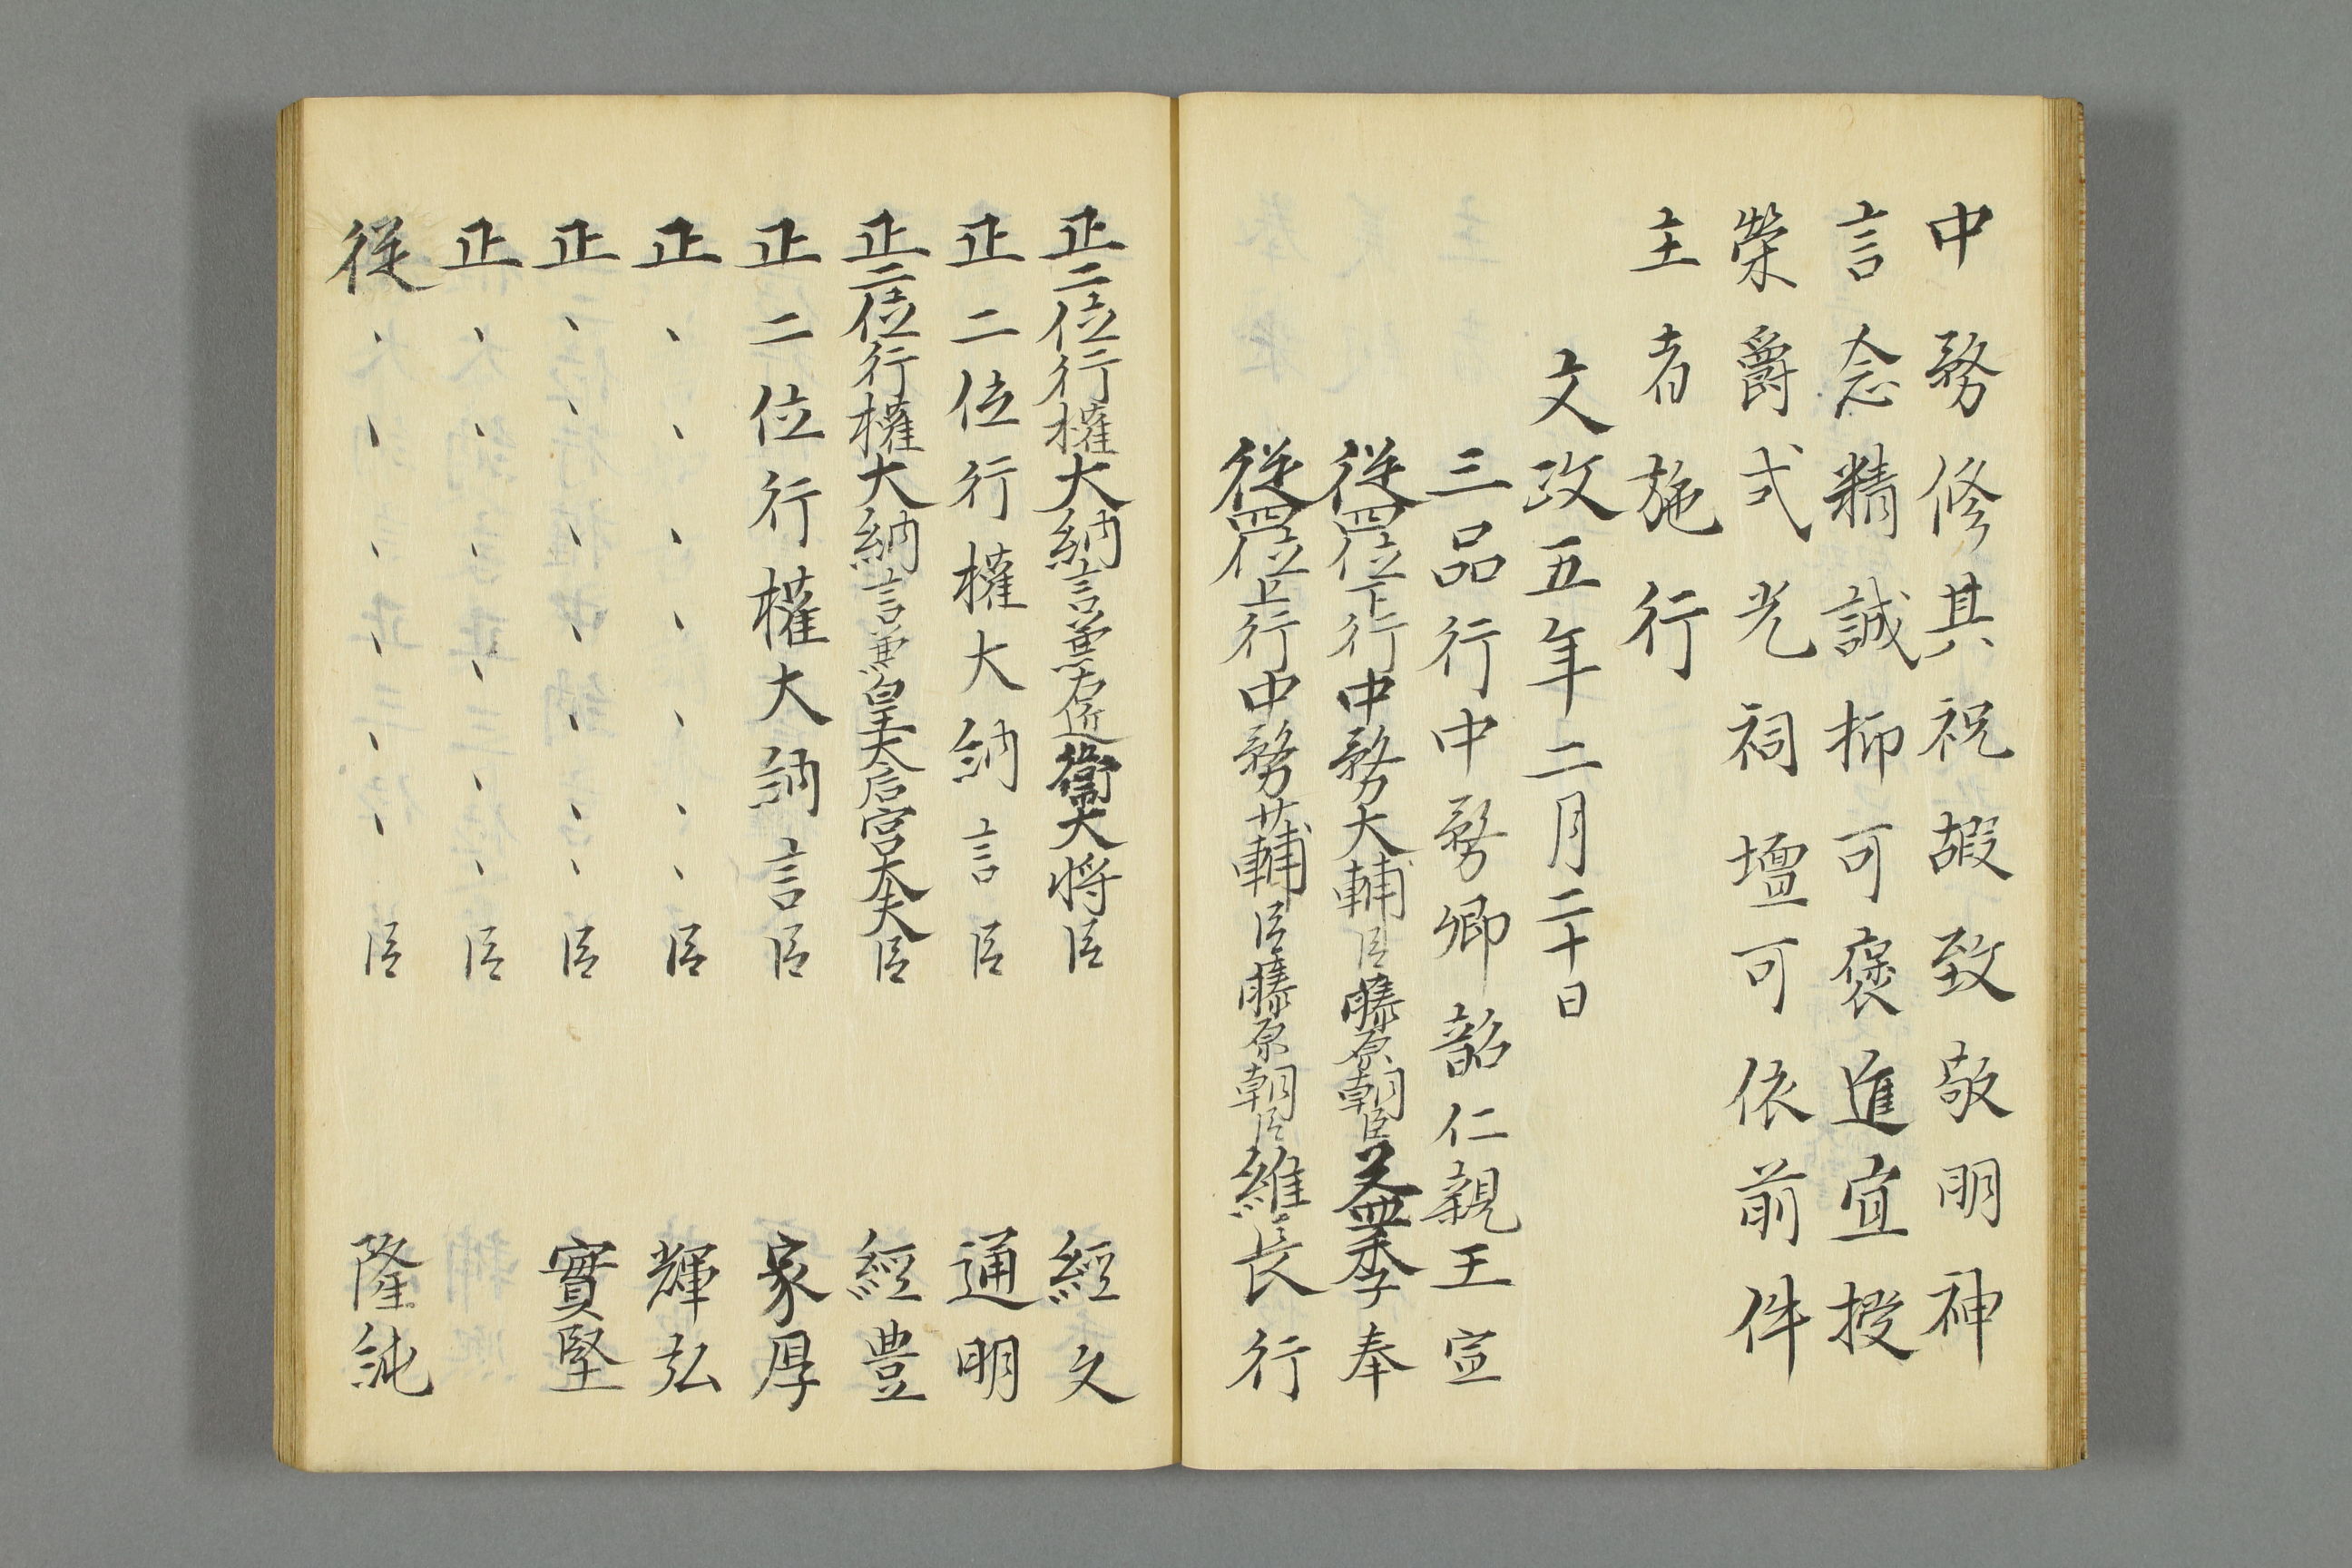 中務修其祝嘏致敬明神
言念精誠抑可褒進宜授
榮爵式光祠壇可依前件
主者施行
文政五年二月二十日
三品行中務卿韶仁親王宣
従四位下行中務大輔臣藤原朝臣益季奉
従四位上行中務少輔臣藤原朝臣維長行
正二位行權大納言兼右近衛大将臣 經久
正二位行權大納言臣 通明
正二位行權大納言兼皇太后宮大夫臣 經豊
正二位行權大納言臣 家厚
正、、、、、、、臣 輝弘
正、、、、、、、臣 實堅
正、、、、、、臣
従、、、、、、臣 隆純